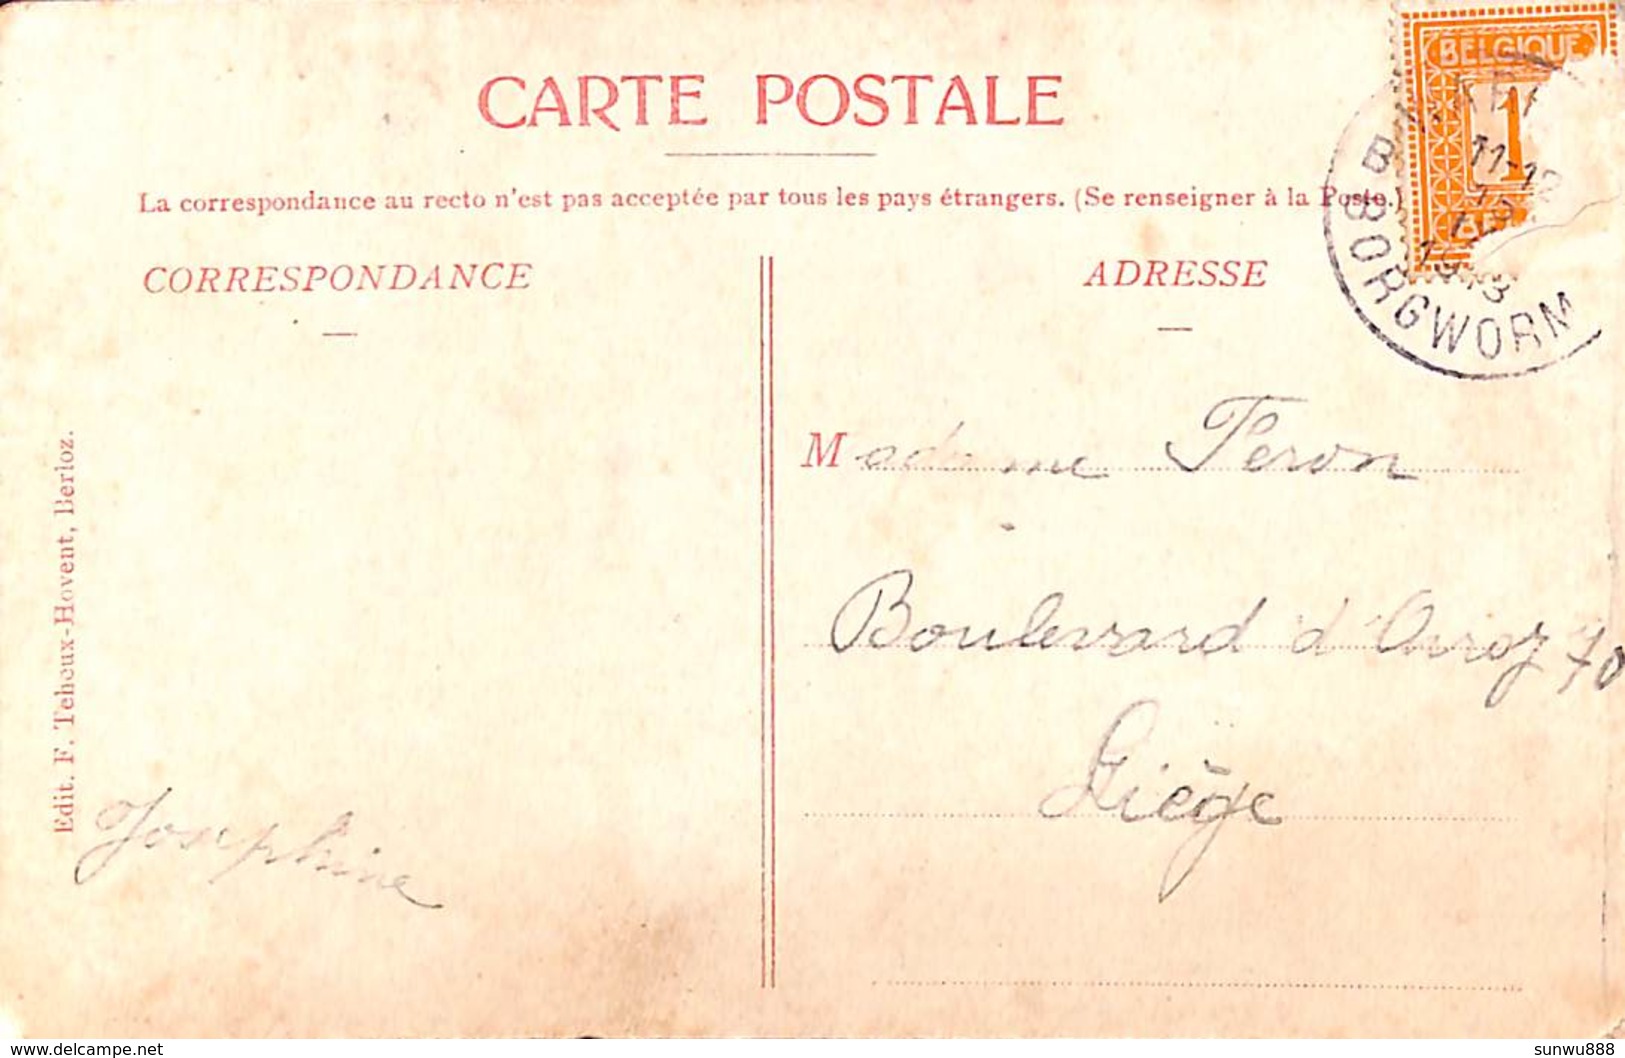 CARTE POSTALE
La correspondance au recto n'est pas acceptée par tous les pays étrangers. (Se renseigner à la Poste.)
CORRESPONDANCE
ADRESSE
BELGIQUE
1
11-12
1913
BORGWORM
Madame Peron
Boulevard d'Avroy 70
Liège
Edit. F. Teheux-Hovent, Berloz.
Josephine
delcampe.net
sunwu888